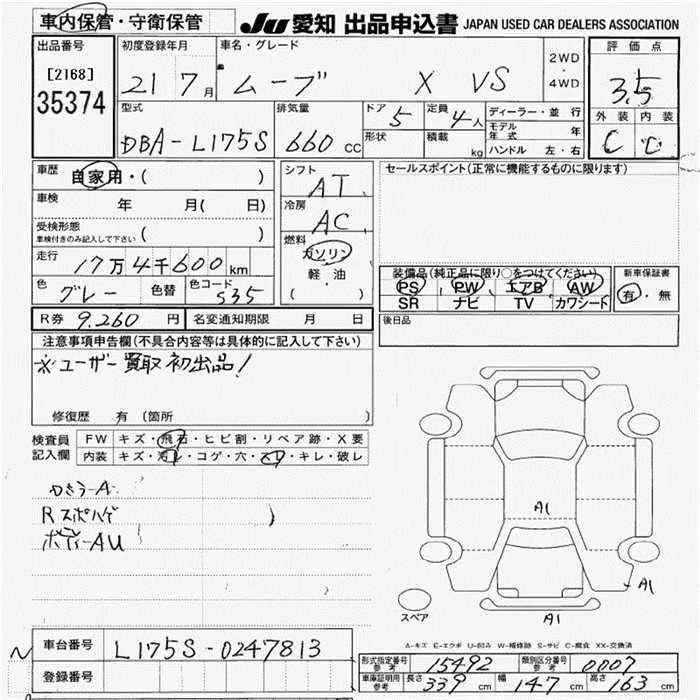 車内保管・守衛保管
JU 愛知 出品申込書 JAPAN USED CAR DEALERS ASSOCIATION
出品番号 初度登録年月 車名・グレード 2WD・4WD 評価点
[2168] 35374 21 7月 ムーブ X VS 3.5
型式 排気量 ドア 5 定員 4人 ディーラー・並行 外装 内装
DBA-L175S 660cc 形状 積載 kg モデル年式 年 C C
ハンドル 左・右
車歴 自家用・( ) シフト AT セールスポイント(正常に機能するものに限ります)
車検 年 月( 日) 冷房 AC
受検形態 車検付きのみ記入して下さい ( ) 燃料 ガソリン
走行 17万4千600km 軽・油 ( )
装備品(純正品に限り○をつけてください) 新車保証書
PS PW エアB AW 有・無
SR ナビ TV カワシード
色 グレー 色替 色コード S35
R券 9.260円 名変通知期限 月 日 後日品
注意事項申告欄(不具合内容等は具体的に記入して下さい)
※ユーザー買取初出品!
修復歴 有 (箇所 )
検査員記入欄 FW キズ・飛石・ヒビ割・リペア跡・X要
内装 キズ・汚レ・コゲ・穴・スレ・キレ・破レ
R スポハゲ
ボディーAU
A1
A1
A1
スペア
A-キズ E-エクボ U-凹み W-補修跡 S-サビ C-腐食 XX-交換済
車台番号 L175S-0247813
登録番号
型式指定番号 参考 15492 類別区分番号 参考 0007
車庫証明用 参考 長さ 339cm 幅 147cm 高さ 163cm